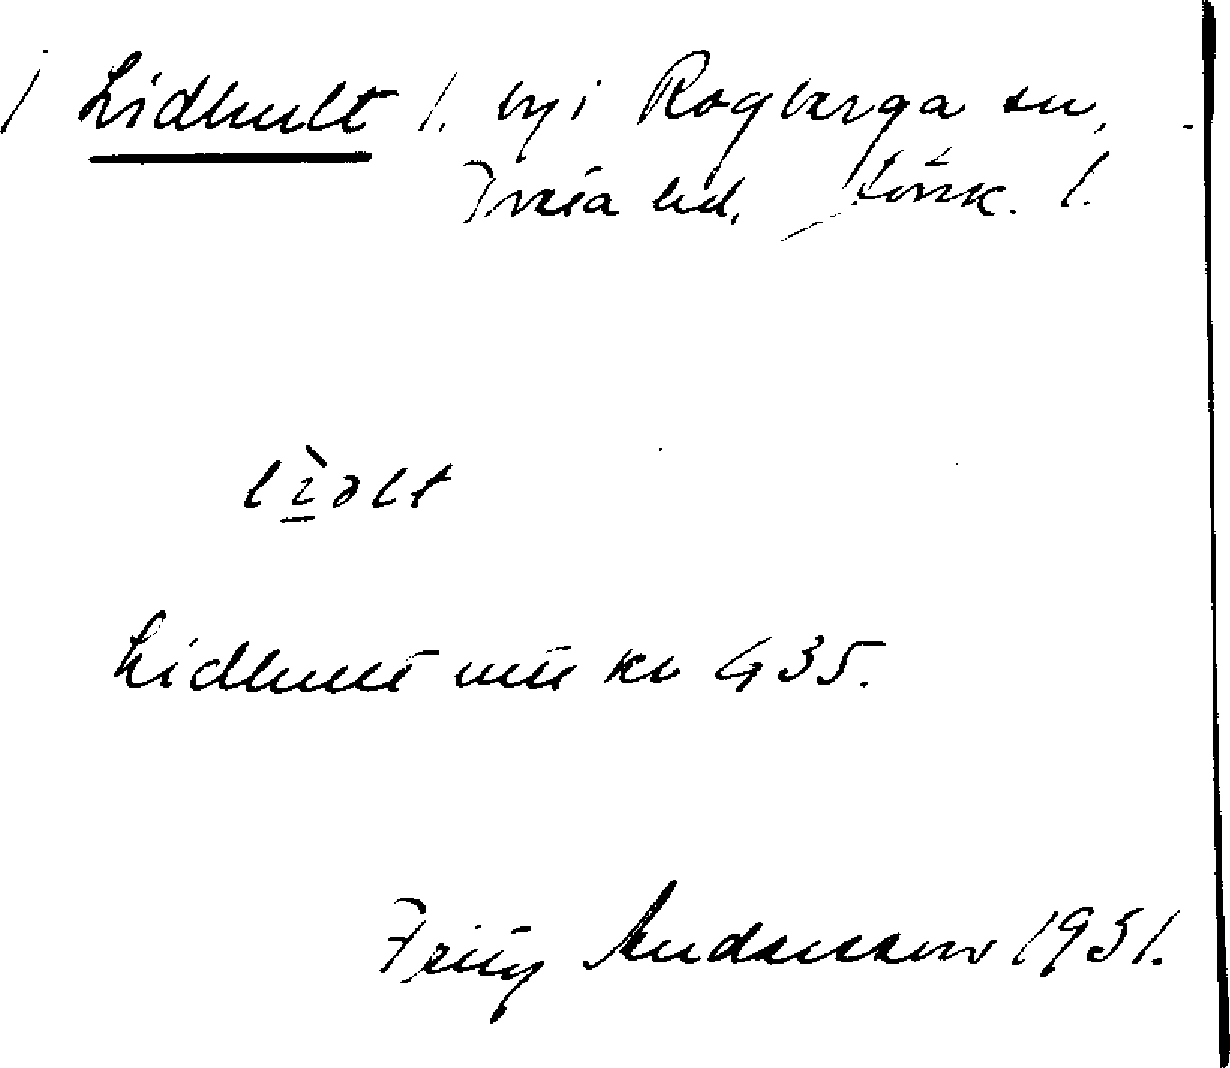 Lidhult l. by i Rogberga sn,
Tveta hd, Jönk. l.
lìəlt
Lidhult mtl kv 435.
Fritz Andersson 1931.